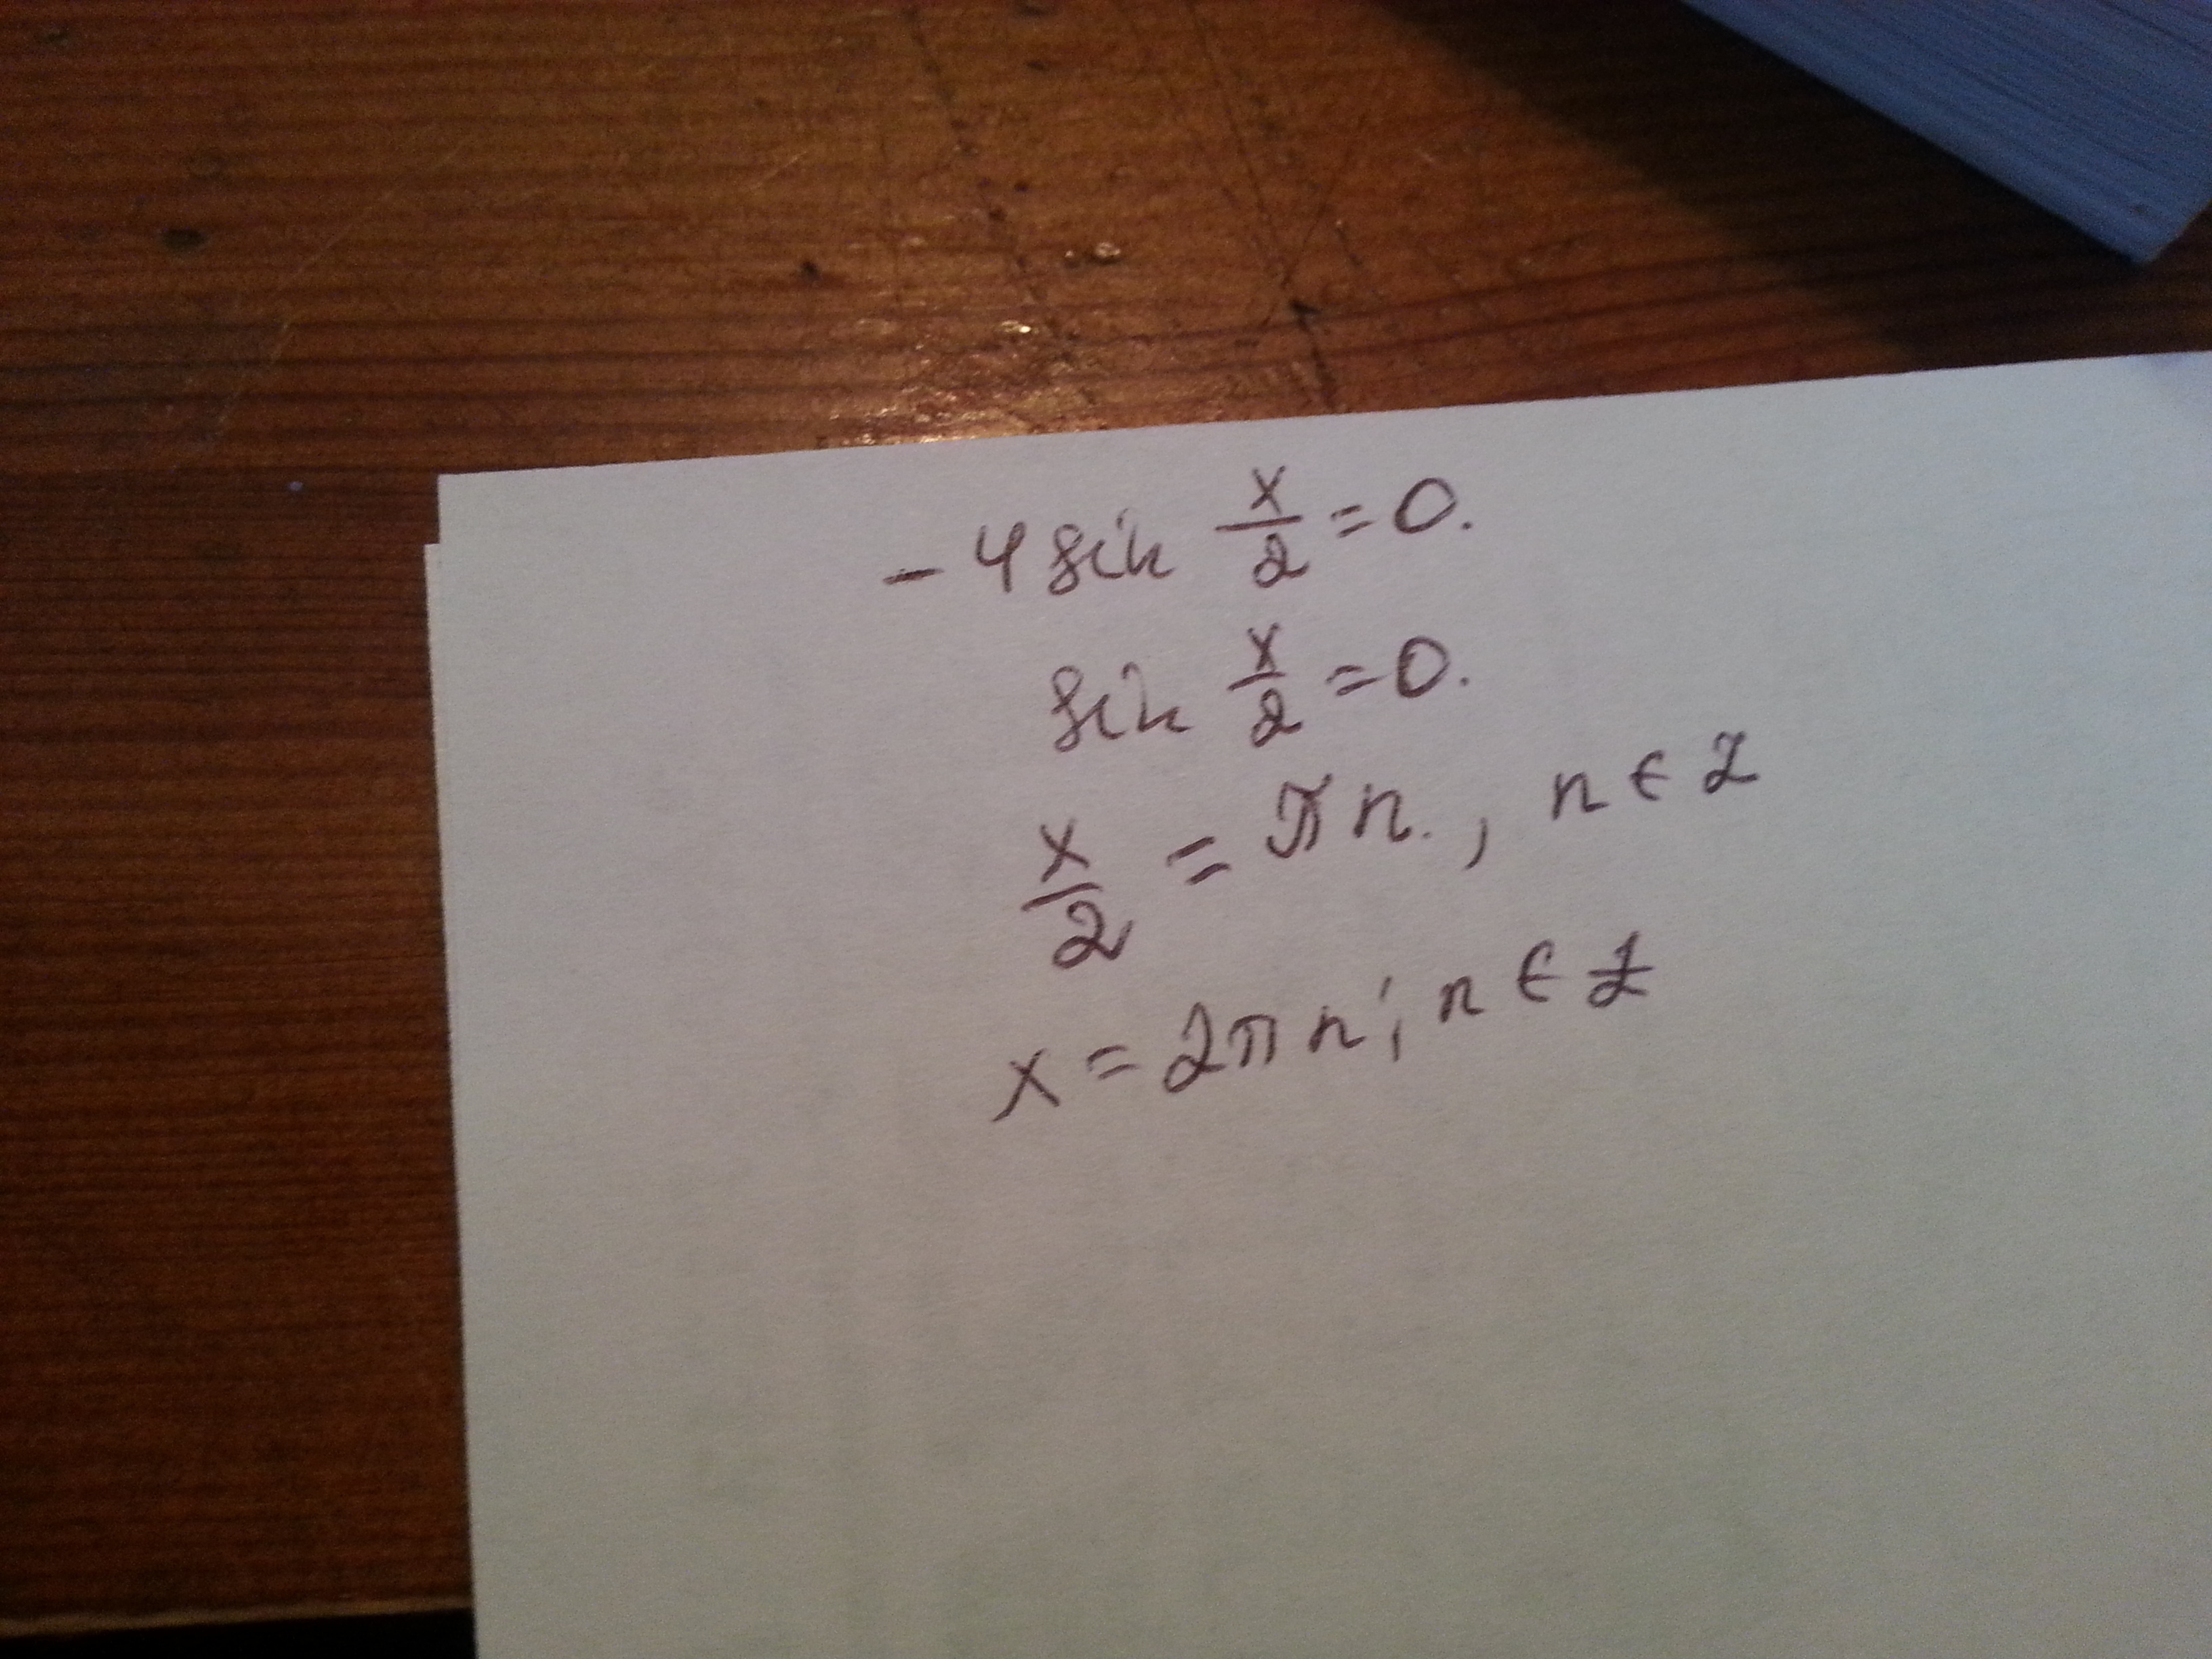 - 4 sin x/2 = 0.
sin x/2 = 0.
x/2 = πn. , n ∈ Z
x = 2πn; n ∈ Z